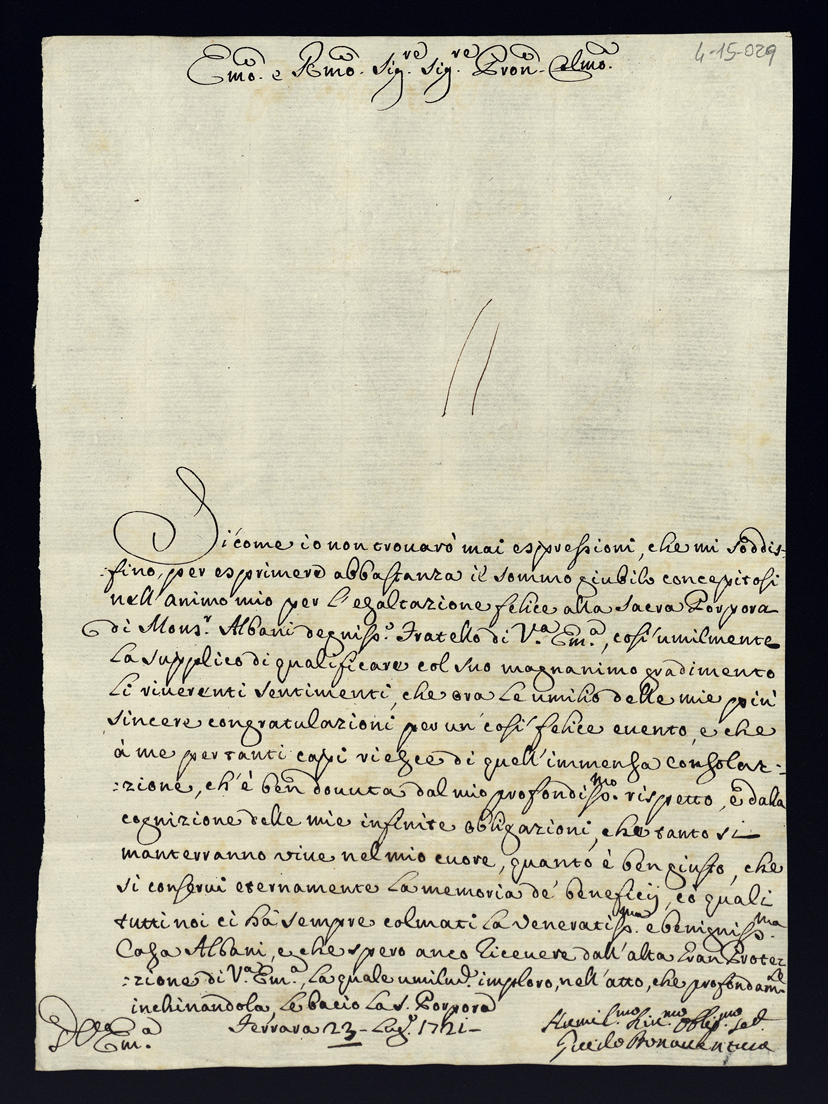 4-15-029
Emo. e Rmo. Sig.re Sig.re Pron. Colmo.
Sicome io non trouarò mai espressioni, che mi soddis-
fino, per esprimere abbastanza il sommo giubilo concepitosi
nell'animo mio per l'esaltazione felice alla Sacra Porpora
di Mons.r Albani degniss.o Fratello di V.a Em.a, così umilmente
La supplico di qualificare col suo magnanimo gradimento
Li riuerenti sentimenti, che ora Le umilio delle mie più
sincere congratulazioni per un così felice euento, e che
à me per tanti capi riesce di quell'immensa consola-
zione, ch'è ben douuta dal mio profondiss.mo rispetto, e dalla
cognizione delle mie infinite obligazioni, che tanto si
manterranno viue nel mio cuore, quanto è ben giusto, che
si conserui eternamente La memoria de' beneficij, cò quali
tutti noi ci hà sempre colmati La Veneratiss.ma e benigniss.ma
Casa Albani, e che spero anco riceuere dall'alta Gran Protez-
zione di V.a Em.a, La quale umilm.e imploro, nell'atto, che profondam.te
inchinandola, Le bacio La S. Porpora
Ferrara 23 Lug.o 1721
Em.a
Humil.mo Obblig.mo
Guido Bonauentura